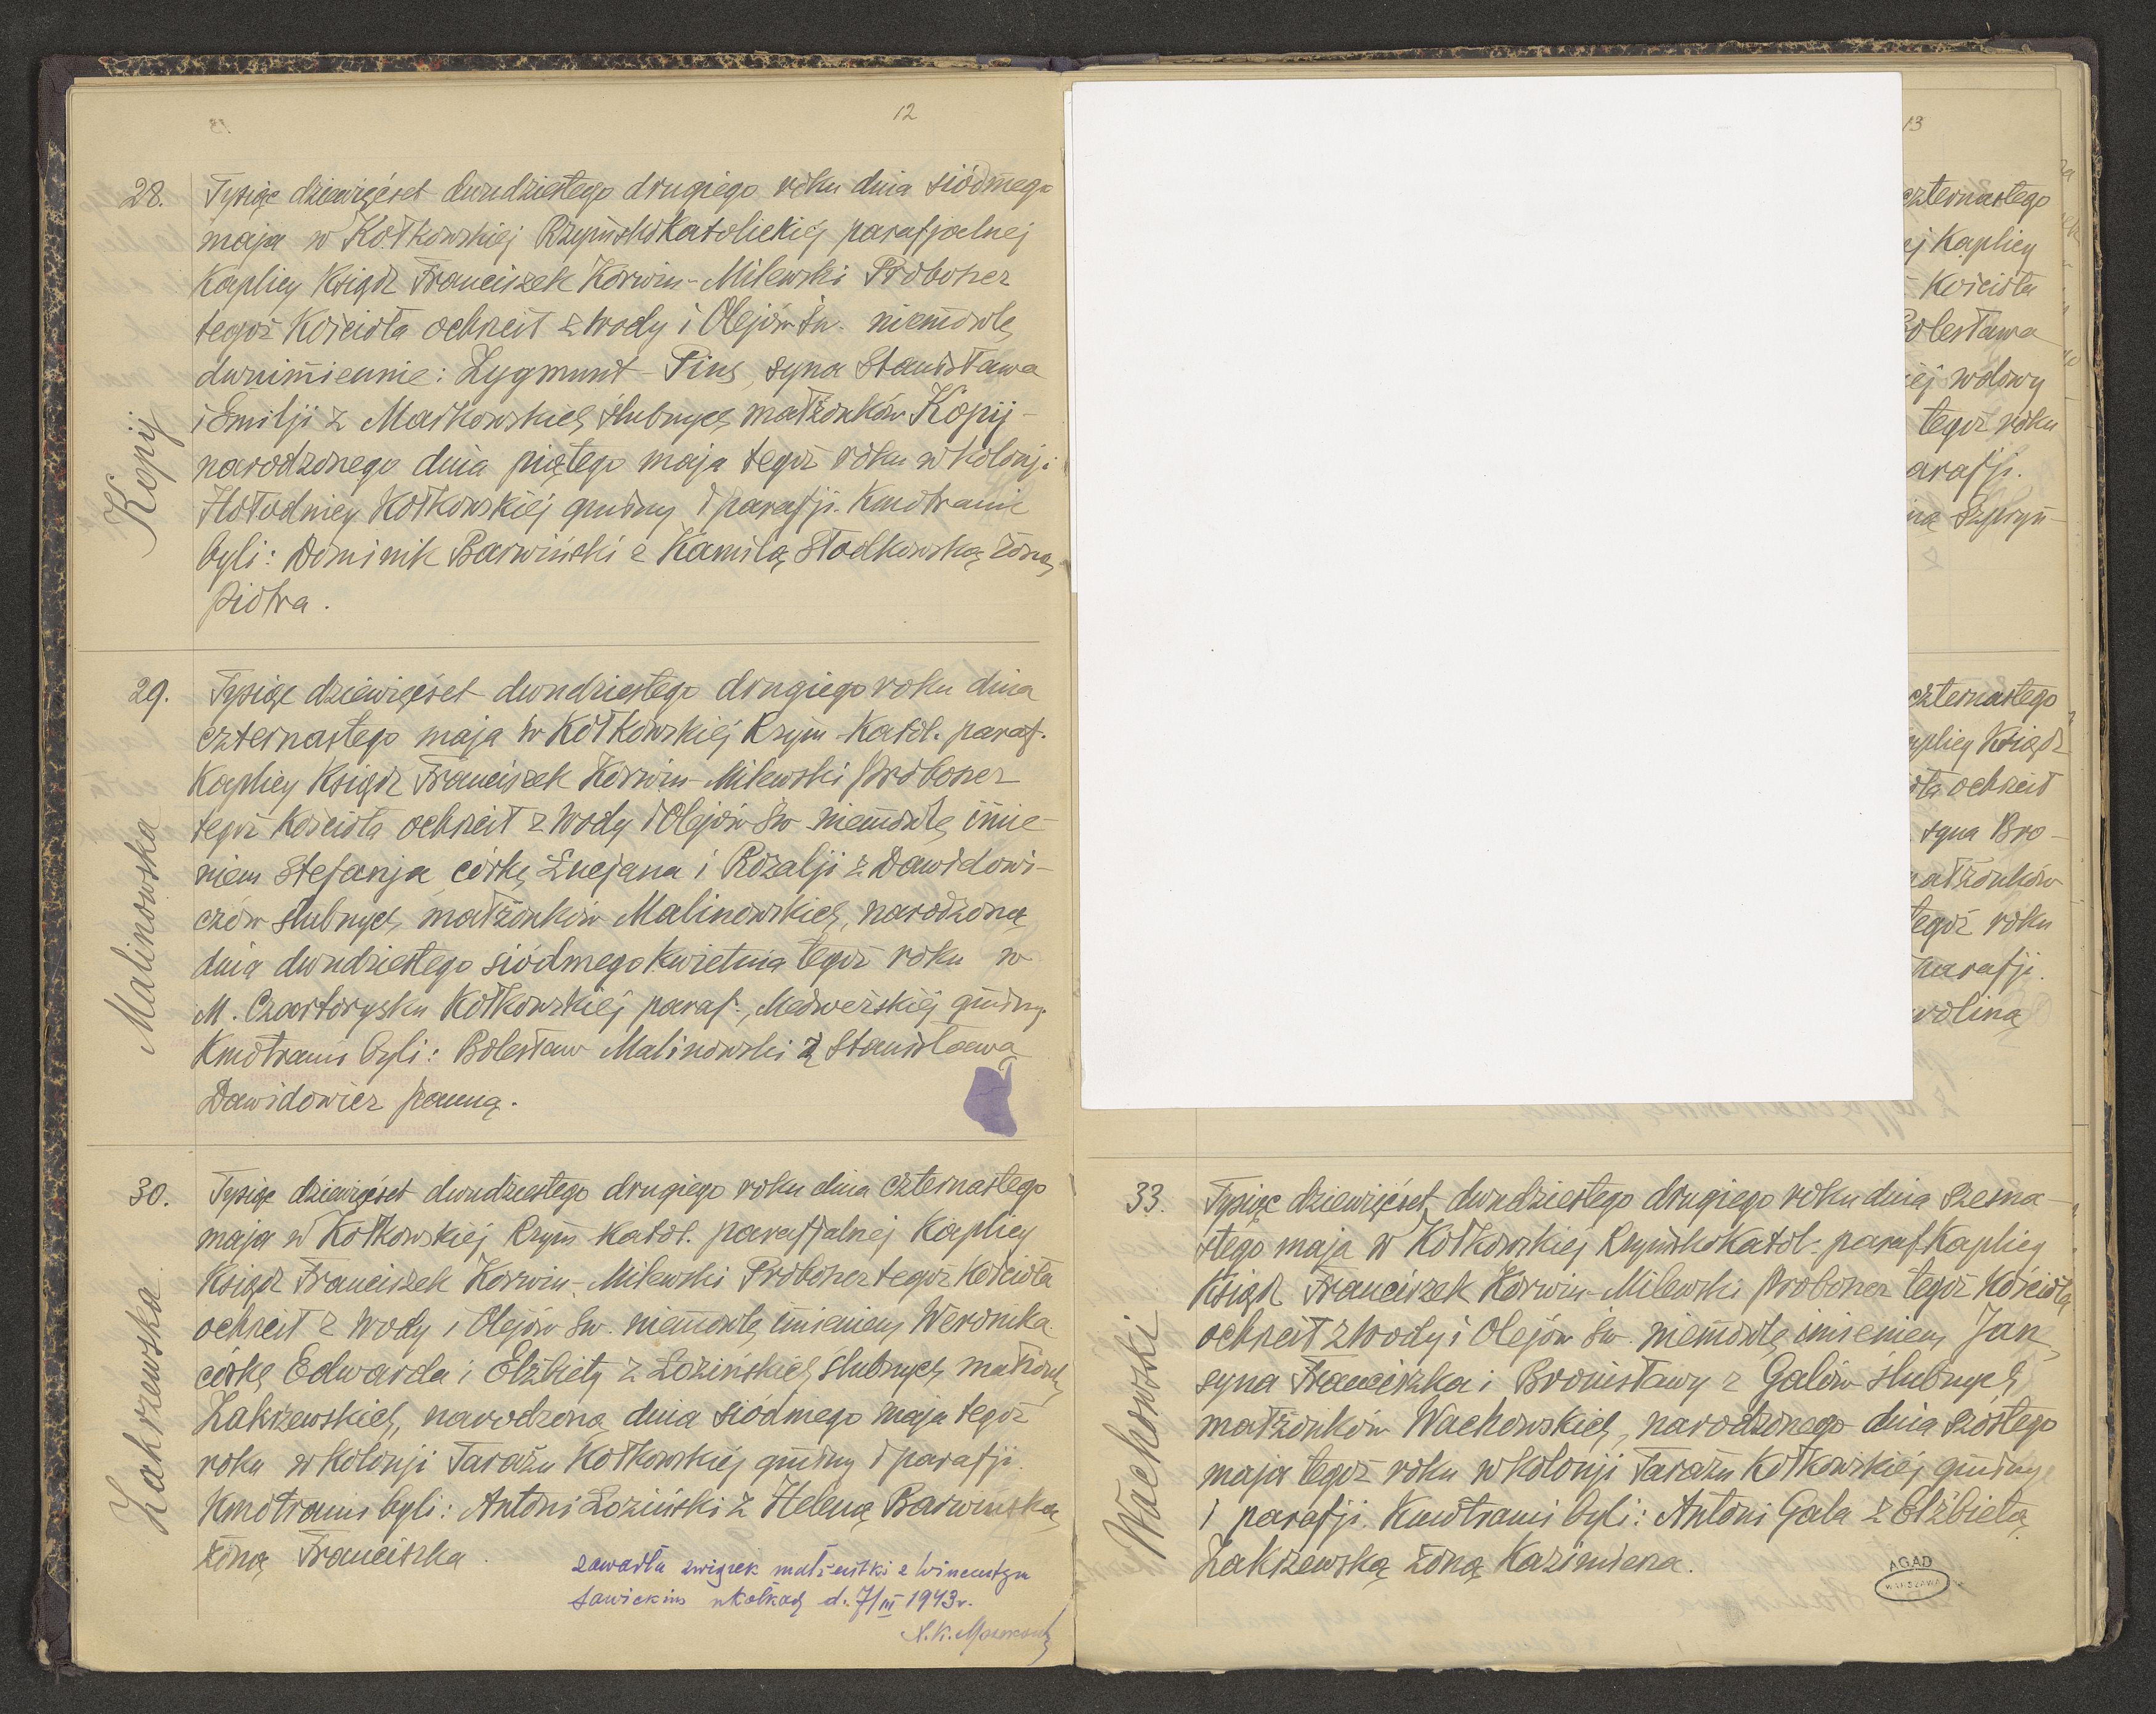 12
28.
Tysiąc dziewięćset dwudziestego drugiego roku dnia siódmego
maja w Kołkowskiej Rzymskokatolickiej parafjalnej
Kaplicy Ksiądz Franciszek Korwin-Milewski Proboszcz
tegoż Kościoła ochrzcił z Wody i Olejów Św. niemowlę
dwuimiennie: Zygmunt-Pius, syna Stanisława
i Emilji z Małkowskich ślubnych małżonków Kopij-
narodzonego dnia piątego maja tegoż roku w kolonji
Hołodnicy Kołkowskiej gminy i parafji. Kmotrami
byli: Dominik Barwiński z Kamilą Stodkowską żoną
Piotra.
Kopij
29.
Tysiąc dziewięćset dwudziestego drugiego roku dnia
czternastego maja w Kołkowskiej Rzym-Katol. paraf.
Kaplicy Ksiądz Franciszek Korwin-Milewski proboszcz
tegoż Kościoła ochrzcił z Wody i Olejów Św niemowlę imie-
niem Stefanja córkę Lucjana i Rozalji z Dawidowi-
czów ślubnych małżonków Malinowskich, narodzoną
dnia dwudziestego siódmego kwietnia tegoż roku w
M. Czartorysku Kołkowskiej paraf., Medweskiej gminy.
Kmotrami byli: Bolesław Malinowski z Stanisławą
Dawidowicz panną.
Malinowska
30.
Tysiąc dziewięćset dwudziestego drugiego roku dnia czternastego
maja w Kołkowskiej Rzym-katol. parafjalnej Kaplicy
Ksiądz Franciszek Korwin-Milewski Proboszcz tegoż Kościoła
ochrzcił z Wody i Olejów Św. niemowlę imieniem Weronika
córkę Edwarda i Elżbiety z Łozińskich ślubnych małżonk
Zakrzewskich, narodzoną dnia siódmego maja tegoż
roku w kolonji Tarażu Kołkowskiej gminy i parafji.
Kmotrami byli: Antoni Łoziński z Heleną Barwińską
żoną Franciszka.
Zakrzewska
zawarła związek małżeński z Wincentym
Sawickim w Kołkach d. 7/III 1943 r.
13
czternastego
ej Kaplicy
Kościoła
Bolesława
iej wdowy
tegoż roku
arafji.
czternastego
aplicy Ksiądz
oła ochrzcił
syna Bro-
małżonków
tegoż roku
parafji.
roliną
33.
Tysiąc dziewięćset dwudziestego drugiego roku dnia szesna-
stego maja w Kołkowskiej Rzymskokatol. paraf Kaplicy
Ksiądz Franciszek Korwin-Milewski proboszcz tegoż Kościoła
ochrzcił z Wody i Olejów Św. niemowlę imieniem Jan,
syna Franciszka i Bronisławy z Galów ślubnych
małżonków Wachowskich, narodzonego dnia szóstego
maja tegoż roku w kolonji Tarażu Kołkowskiej gminy
i parafji. Kmotrami byli: Antoni Gala z Elżbietą
Zakrzewską żoną Kazimierza.
Wachowski
AGAD
WARSZAWA